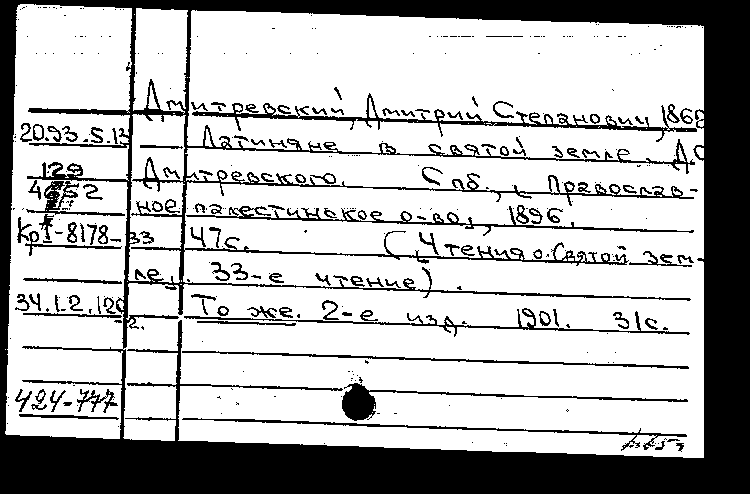 Дмитревский, Дмитрий Степанович, 186
20.93.5.13 Латиняне в святой земле. Д.С
129 Дмитревского. Спб., [Православ-
ное палестинское о-во], 1896.
Кр I-8178-33 47с. ([Чтения о Святой зем-
ле]. 33-е чтение).
34.1.2.120 То же. 2-е изд. 1901. 31с.
-2.
424-777